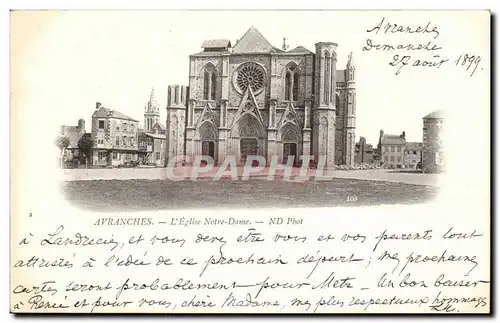 Avranches
Dimanche
27 août 1899.
CPARAMA.COM
108
AVRANCHES. — L'Église Notre-Dame. — ND Phot
à Landrecies, et vous devez être vous et vos parents tout
attristés à l'idée de ce prochain départ; mes prochaines
cartes seront probablement pour Metz. Un bon baiser
à Renée et pour vous, chère Madame, mes plus respectueux hommages